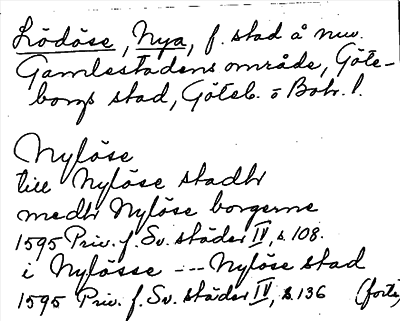 Lödöse, Nya, f. stad å nuv.
Gamlestadens område, Göte-
borgs stad, Göteb. o Boh. l.
Nylöse
till Nylöse stadhr
medhr Nylöse borgerne
1595 Priv. f. Sv. städer IV, s. 108.
i Nylösse --- Nylöse stad
1595 Priv. f. Sv. städer IV, s. 136 (forts)